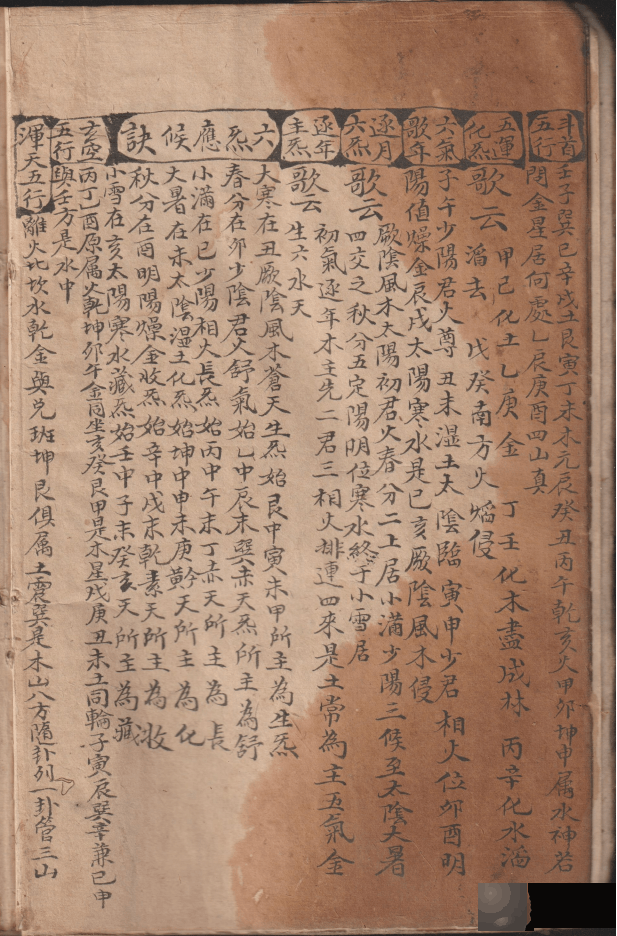 斗首五行
壬子巽巳辛戌土艮寅丁未木元辰癸丑丙午乾亥火甲卯坤申屬水神若
問金星居何處乙辰庚酉四山真
五運化炁
歌云 甲己化土乙庚金 丁壬化木盡成林 丙辛化水滔
滔去 戊癸南方火焰侵
六氣歌年
子午少陽君火尊 丑未湿土太陰臨 寅申少君相火位卯酉明
陽值燥金辰戌太陽寒水是巳亥厥陰風木侵
逐月六炁
歌云 厥陰風木太陽初君火春分二上居小滿少陽三候至太陰大暑
四交之秋分五定陽明位寒水終于小雪居
逐年主炁
歌云 初氣逐年木主先二君三相火排連四來是土常為主五氣金
生六水天
六炁應候訣
大寒在丑厥陰風木蒼天生炁始艮中寅未甲所主為生炁
春分在卯少陰君火舒氣始乙中辰末巽赤天炁所主為舒
小滿在巳少陽相火長炁始丙中午末丁赤天所主為長
大暑在未太陰湿土化炁始坤中申末庚黅天所主為化
秋分在酉明陽燥金收炁始辛中戌末乾素天所主為收
小雪在亥太陽寒水藏炁始壬中子末癸玄天所主為藏
玄空五行
丙丁酉原属火乾坤卯午金同坐亥癸艮甲是木星戌庚丑未土同輪子寅辰巽辛兼巳申
與壬方是水中
渾天五行
離火北坎水乾金與兑班坤艮俱属土震巽是木山八方隨卦列一卦管三山